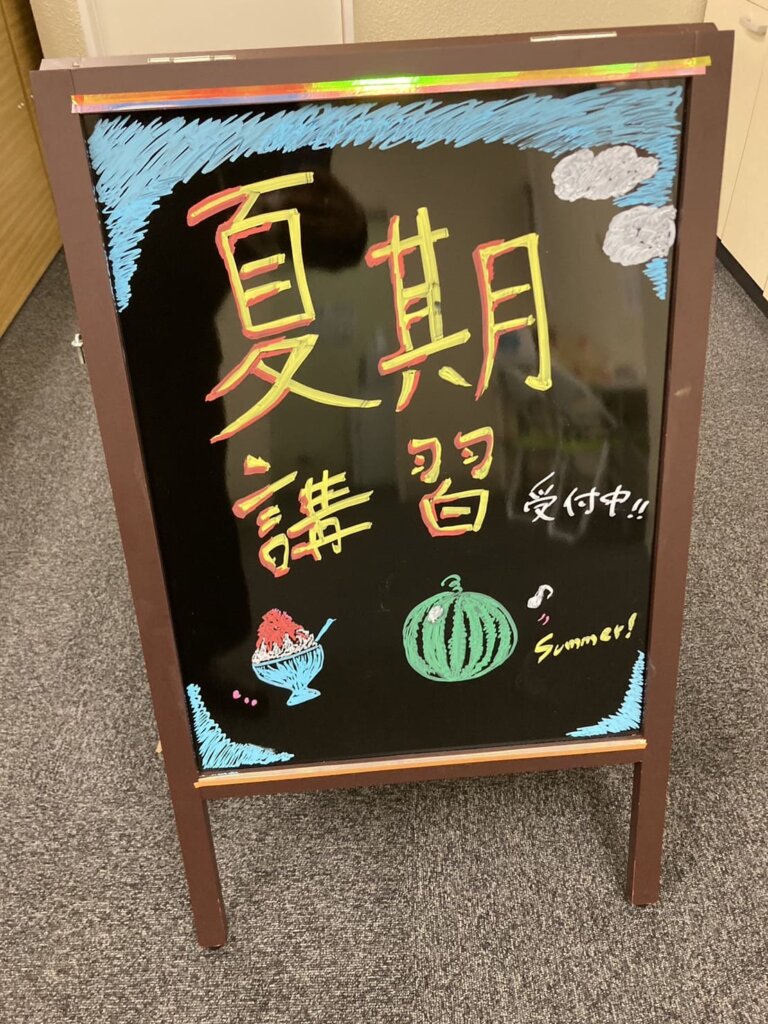 夏期
講習
受付中!!
Summer!